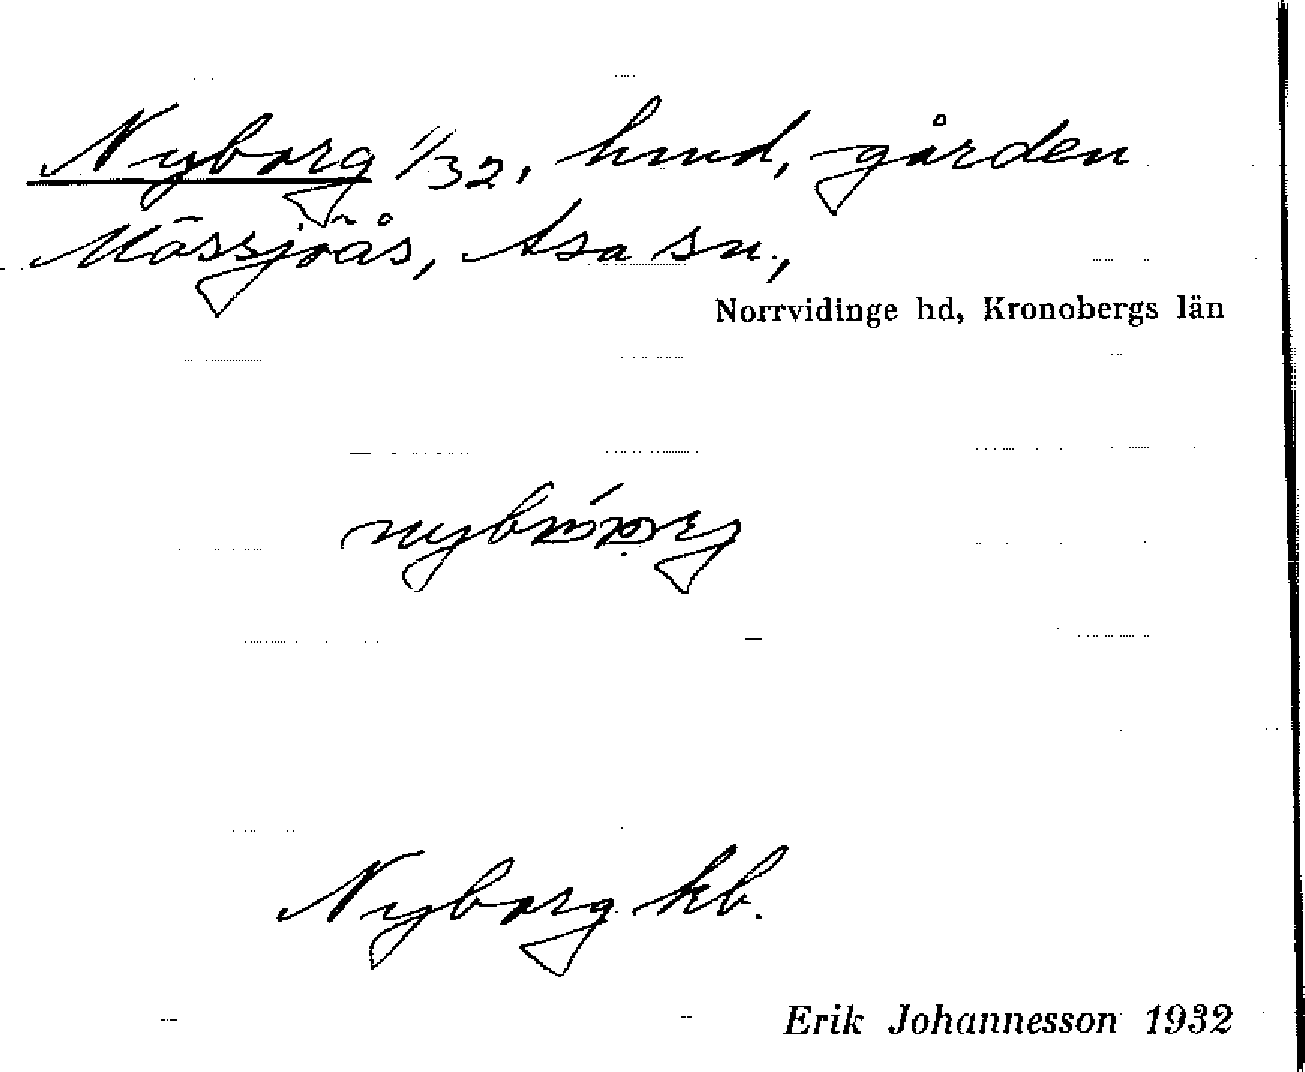 Nyborg 1/32, hmd, gården
Mässjöås, Asa sn.,
Norrvidinge hd, Kronobergs län
Nyborg kb.
Erik Johannesson 1932